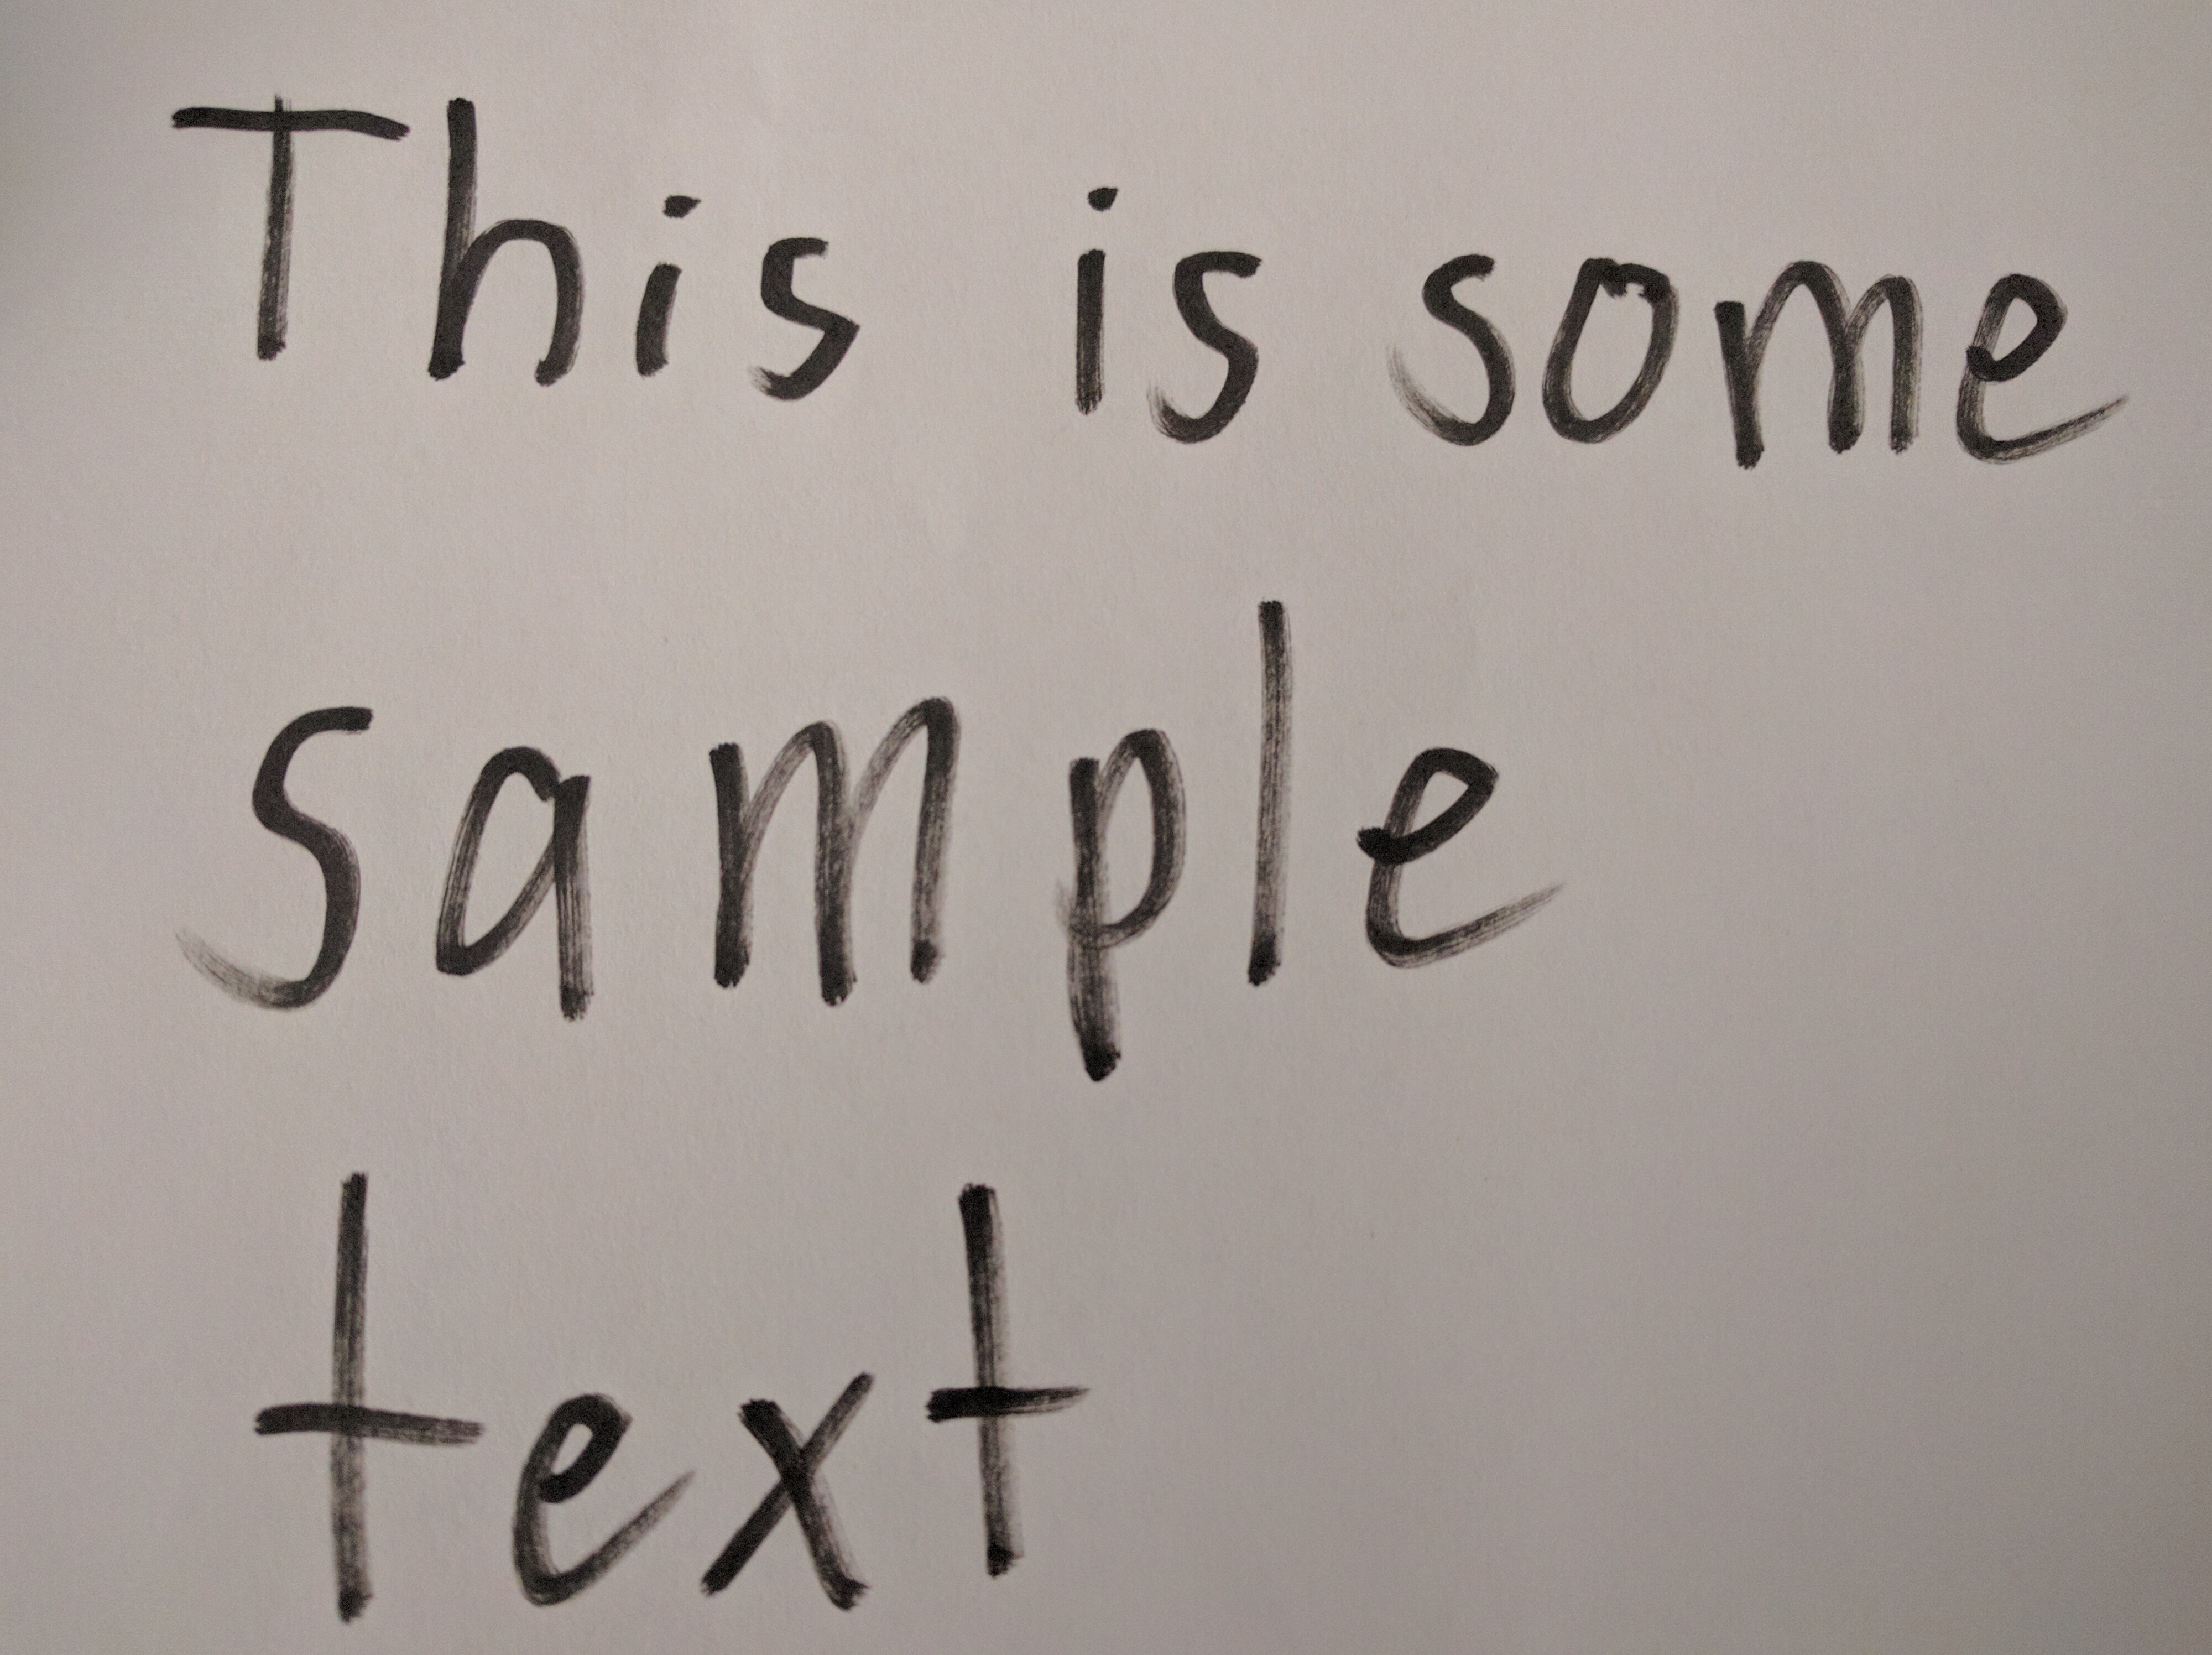 This is some
sample
text